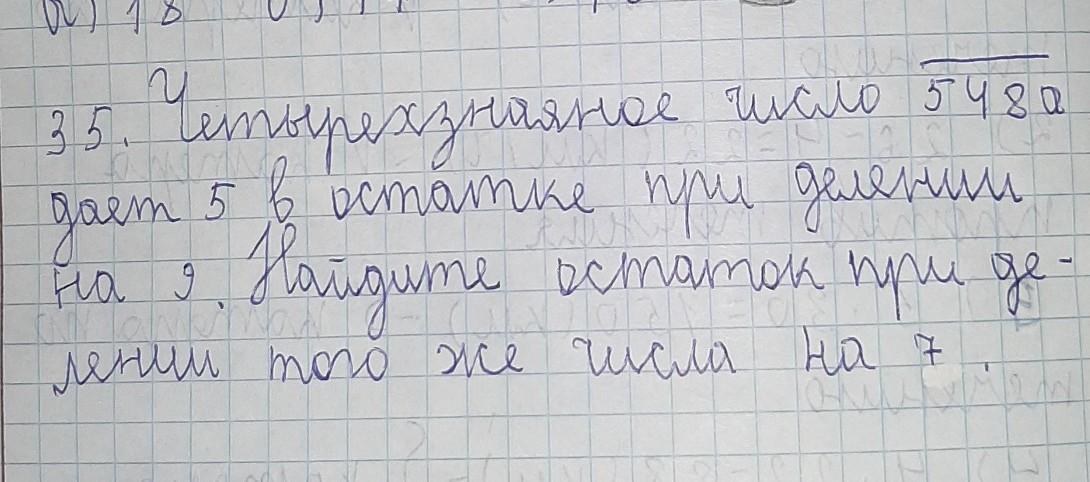 а) 18
35. Четырехзначное число 548a
дает 5 в остатке при делении
на 9. Найдите остаток при де-
лении того же числа на 7.